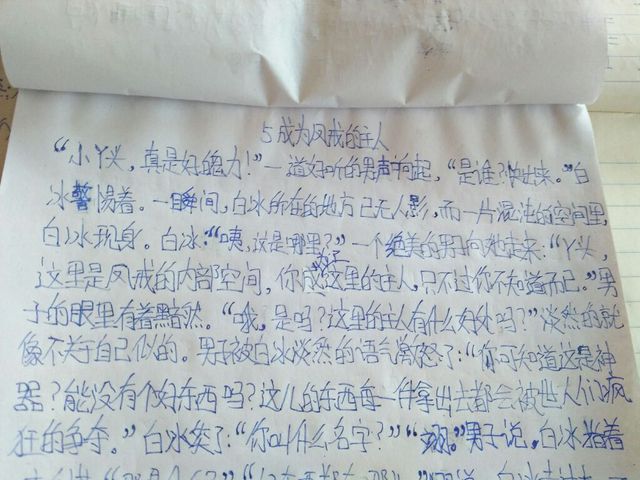 5 成为凤戒的主人
“小丫头，真是好魄力！”一道好听的男声响起，“是谁？快出来。”白
冰警惕着。一瞬间，白冰所在的地方已无人影，而一片混沌的空间里，
白冰现身。白冰：“咦，这是哪里？”一个绝美的男子向她走来：“丫头，
这里是凤戒的内部空间，你成为这里的主人，只不过你不知道而已。”男
子的眼里有着黯然。“哦，是吗？这里的主人有什么好处吗？”淡然的就
像不关于自己似的。男子被白冰淡然的语气激怒了：“你可知道这是神
器？能没有个好东西吗？这儿的东西每一件拿出去都会被世人们疯
狂的争夺。”白冰笑了：“你叫什么名字？”“翊。”男子说，白冰指着